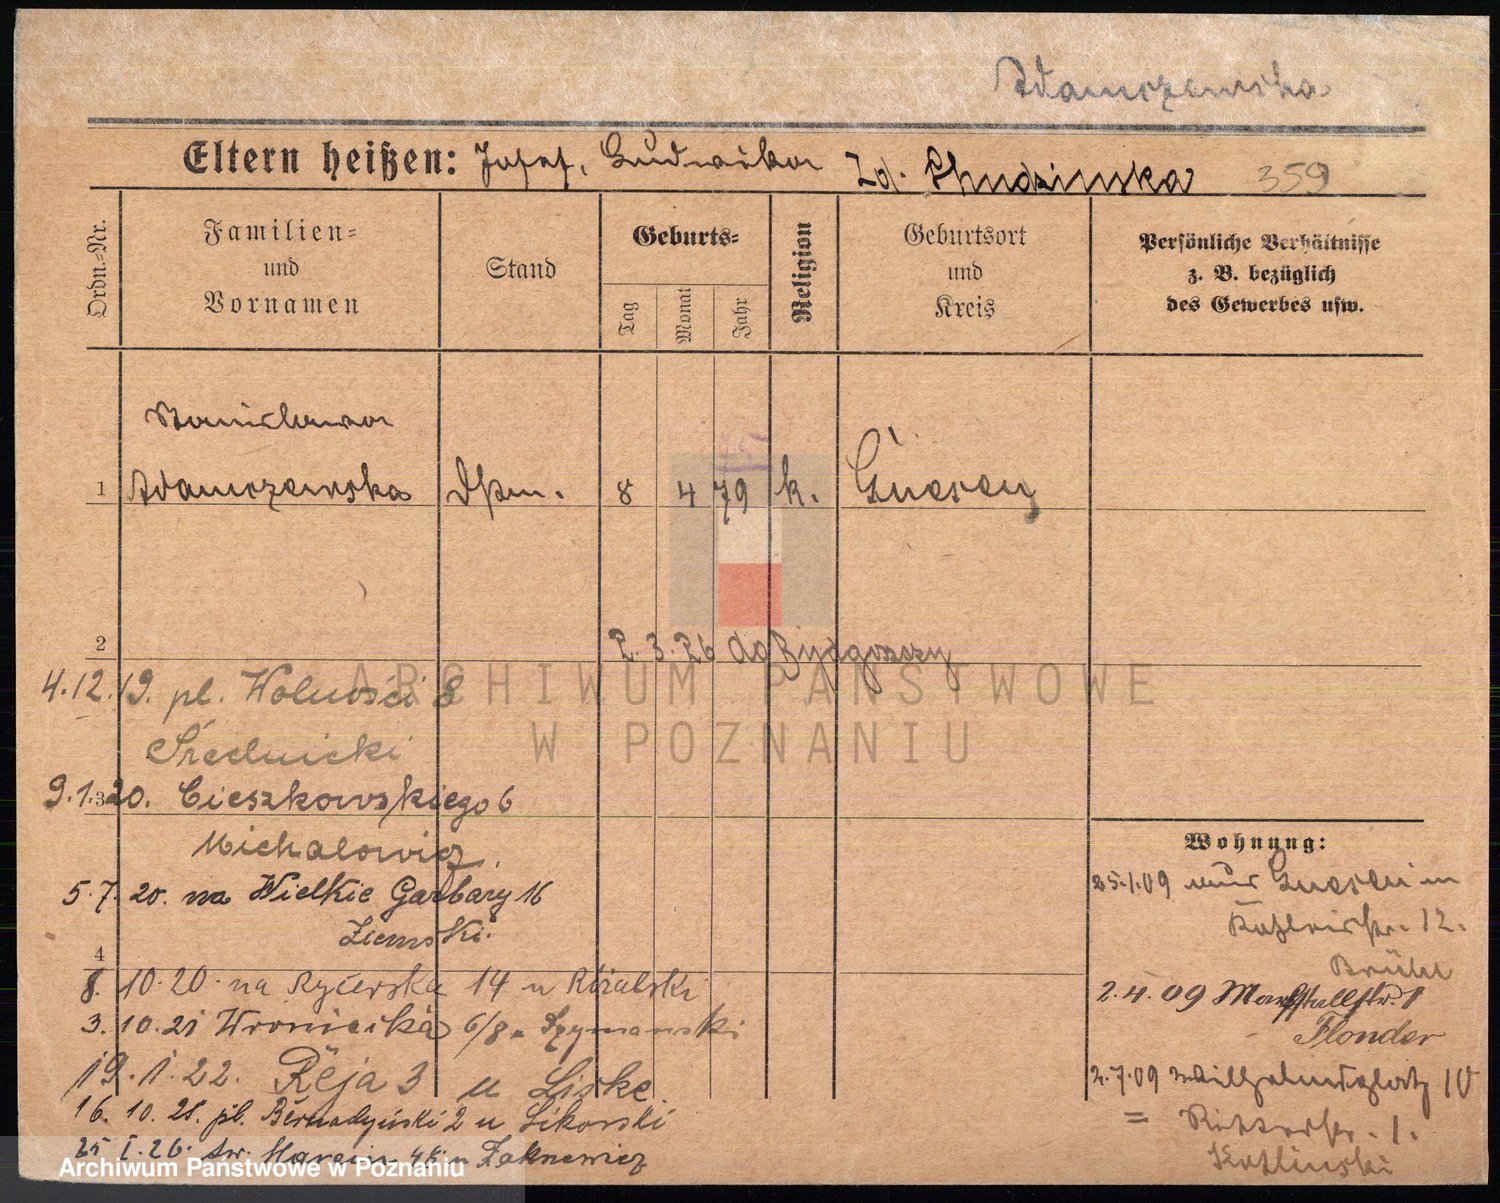 Adamczewska
Eltern heißen: Josef, Ludwika Zd. Chudzinska 359
Ordn.-Nr.
Familien- und Vornamen
Stand
Geburts-
Tag
Monat
Jahr
Religion
Geburtsort und Kreis
Persönliche Verhältnisse
z. B. bezüglich
des Gewerbes usw.
Stanislawa
1 Adamczewska 8 4 79 k. Gnesen
2
2. 3. 26 do Bydgoszczy
4.12.19. pl. Wolności 8
Średnicki
3
9.1.20. Cieszkowskiego 6
Michalowicz
5.7.20. na Wielkie Garbary 16
Ziemski
4
8. 10.20. na Rycerska 14 u
3. 10.21 Wroniecka 6/8 u Szymanski
19.1.22. Reja 3 u Liske
16. 10. 25. pl. Bernadyński 2 u Sikorski
25 I. 26. św. Marcin u
Wohnung:
25.1.09 aus Gnesen in
12.
Brühl
2.4.09 Marstallstr. 1
Flonder
2.7.09 Wilhelmsplatz 10
= Ritterstr. 1.
Kozlinski
ARCHIWUM PAŃSTWOWE
W POZNANIU
Archiwum Państwowe w Poznaniu